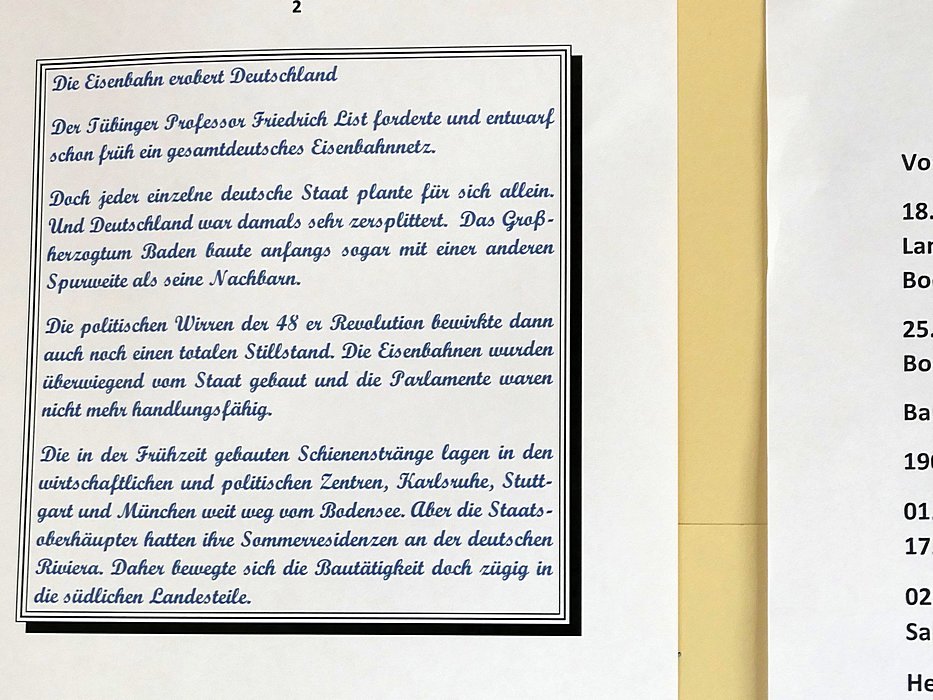 2
Die Eisenbahn erobert Deutschland
Der Tübinger Professor Friedrich List forderte und entwarf
schon früh ein gesamtdeutsches Eisenbahnnetz.
Doch jeder einzelne deutsche Staat plante für sich allein.
Und Deutschland war damals sehr zersplittert. Das Groß-
herzogtum Baden baute anfangs sogar mit einer anderen
Spurweite als seine Nachbarn.
Die politischen Wirren der 48 er Revolution bewirkte dann
auch noch einen totalen Stillstand. Die Eisenbahnen wurden
überwiegend vom Staat gebaut und die Parlamente waren
nicht mehr handlungsfähig.
Die in der Frühzeit gebauten Schienenstränge lagen in den
wirtschaftlichen und politischen Zentren, Karlsruhe, Stutt-
gart und München weit weg vom Bodensee. Aber die Staats-
oberhäupter hatten ihre Sommerresidenzen an der deutschen
Riviera. Daher bewegte sich die Bautätigkeit doch zügig in
die südlichen Landesteile.
18.
25.
01.
17.
02